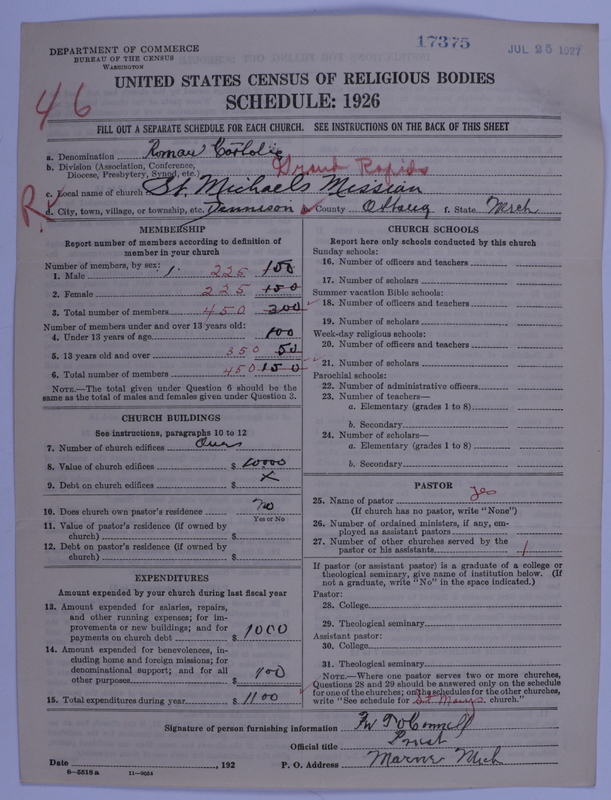 17375
JUL 25 1927
DEPARTMENT OF COMMERCE
BUREAU OF THE CENSUS
WASHINGTON
UNITED STATES CENSUS OF RELIGIOUS BODIES
SCHEDULE: 1926
46
FILL OUT A SEPARATE SCHEDULE FOR EACH CHURCH. SEE INSTRUCTIONS ON THE BACK OF THIS SHEET
a. Denomination Roman Catholic
b. Division (Association, Conference, Diocese, Presbytery, Synod, etc.) Grand Rapids
R
c. Local name of church St. Michaels Mission
d. City, town, village, or township, etc. Dennison e. County f. State Mich
MEMBERSHIP
Report number of members according to definition of member in your church
Number of members, by sex:
1. Male 225 150
2. Female 225 150
3. Total number of members 450 300
Number of members under and over 13 years old:
4. Under 13 years of age 100
5. 13 years old and over 350 50
6. Total number of members 450 150
NOTE.—The total given under Question 6 should be the same as the total of males and females given under Question 3.
CHURCH BUILDINGS
See instructions, paragraphs 10 to 12
7. Number of church edifices
8. Value of church edifices $ 10000
9. Debt on church edifices $ x
10. Does church own pastor's residence No
Yes or No
11. Value of pastor's residence (if owned by church) $
12. Debt on pastor's residence (if owned by church) $
EXPENDITURES
Amount expended by your church during last fiscal year
13. Amount expended for salaries, repairs, and other running expenses; for improvements or new buildings; and for payments on church debt $ 1000
14. Amount expended for benevolences, including home and foreign missions; for denominational support; and for all other purposes $ 100
15. Total expenditures during year $ 1100
CHURCH SCHOOLS
Report here only schools conducted by this church
Sunday schools:
16. Number of officers and teachers
17. Number of scholars
Summer vacation Bible schools:
18. Number of officers and teachers
19. Number of scholars
Week-day religious schools:
20. Number of officers and teachers
21. Number of scholars
Parochial schools:
22. Number of administrative officers
23. Number of teachers—
a. Elementary (grades 1 to 8)
b. Secondary
24. Number of scholars—
a. Elementary (grades 1 to 8)
b. Secondary
PASTOR
25. Name of pastor Yes
(If church has no pastor, write "None")
26. Number of ordained ministers, if any, employed as assistant pastors
27. Number of other churches served by the pastor or his assistants 1
If pastor (or assistant pastor) is a graduate of a college or theological seminary, give name of institution below. (If not a graduate, write "No" in the space indicated.)
Pastor:
28. College
29. Theological seminary
Assistant pastor:
30. College
31. Theological seminary
NOTE.—Where one pastor serves two or more churches, Questions 28 and 29 should be answered only on the schedule for one of the churches; on the schedules for the other churches, write "See schedule for St Marys church."
Signature of person furnishing information
Official title Priest
Date , 192 P. O. Address Marne Mich
6—5518a 11—9034